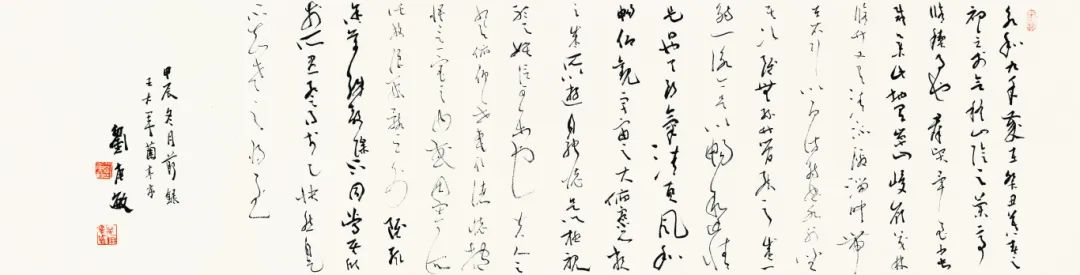 永和九年歲在癸丑暮春之
初會于會稽山陰之蘭亭
脩禊事也群賢畢至少長
咸集此地有崇山峻領茂林
脩竹又有清流激湍映帶
左右引以為流觴曲水列坐
其次雖無絲竹管弦之盛一
觴一詠亦足以暢敘幽情
是日也天朗氣清惠風和
暢仰觀宇宙之大俯察品類
之盛所以遊目騁懷足以極視
聽之娛信可樂也夫人之相
與俯仰一世或取諸懷抱
悟言一室之內或因寄所
託放浪形骸之外雖取
舍萬殊靜躁不同當其欣
於所遇暫得於己快然自足
不知老之將至
甲辰冬月節錄
王右軍蘭亭序
劉 敏